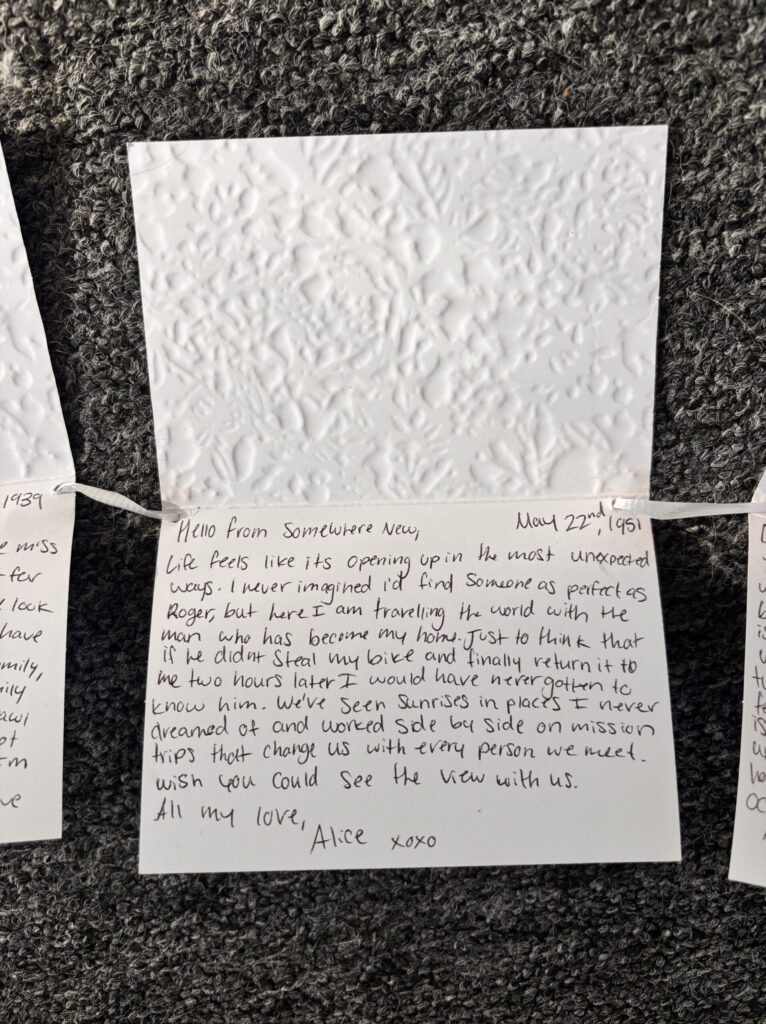 1939
e miss
look
have
mily,
ily
ot
Hello from Somewhere New,
May 22nd, 1951
Life feels like its opening up in the most unexpected
ways. I never imagined i'd find someone as perfect as
Roger, but here I am travelling the world with the
man who has become my home. Just to think that
if he didnt steal my bike and finally return it to
me two hours later I would have never gotten to
know him. We've seen sunrises in places I never
dreamed of and worked side by side on mission
trips that change us with every person we meet.
wish you could see the view with us.
All my love,
Alice xoxo